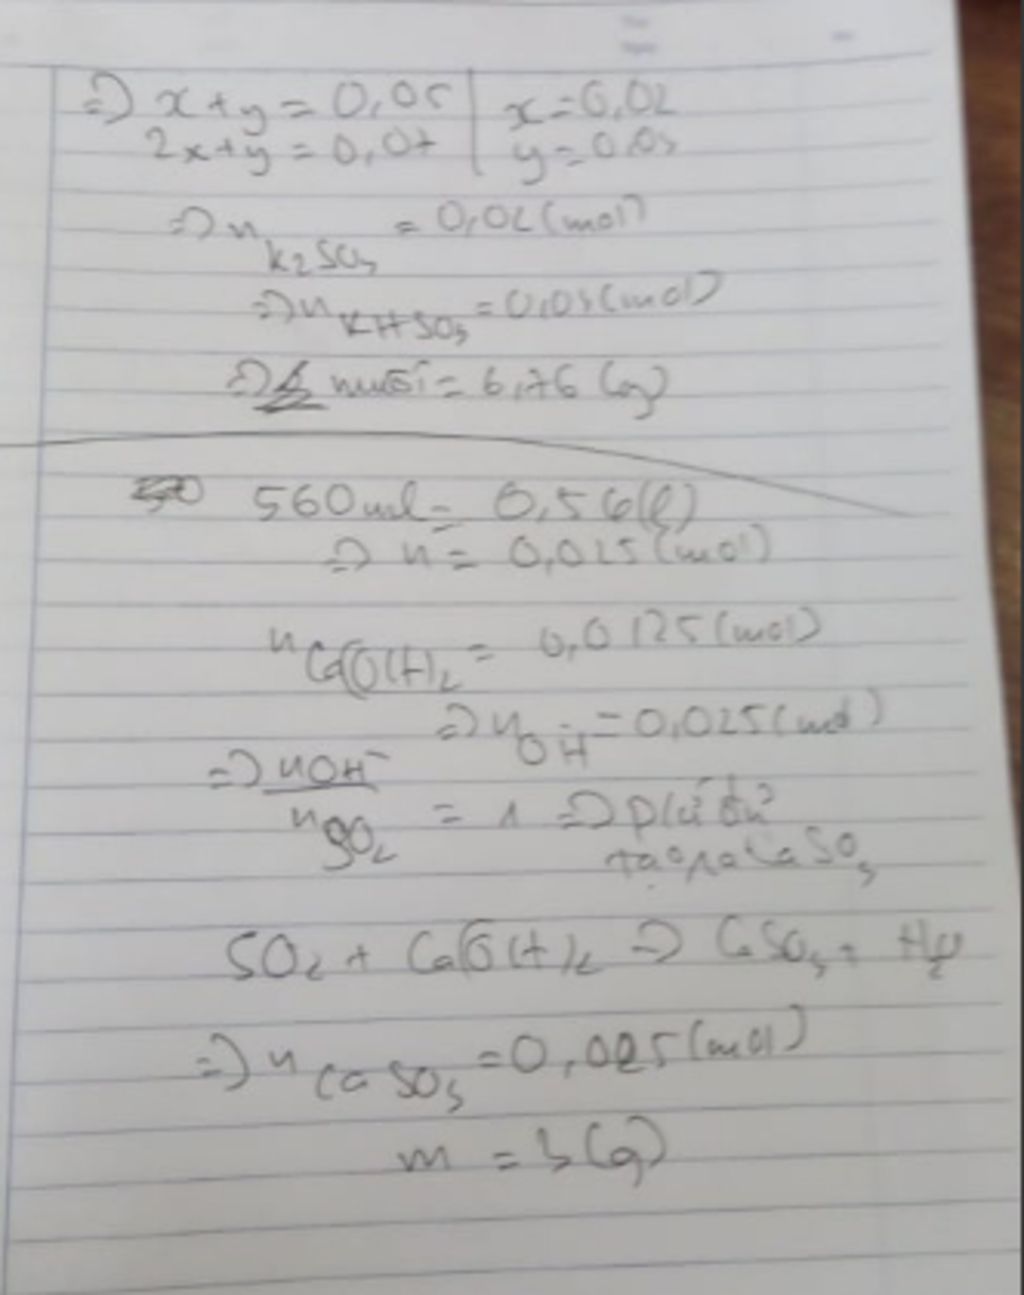 => x+y = 0,05 | x=0,02
2x+y = 0,07 | y=0,03
=> n K2SO3 = 0,02 (mol)
=> n KHSO3 = 0,03 (mol)
=> muối = 6,76 (g)
560ml = 0,56(l)
=> n = 0,025 (mol)
n Ca(OH)2 = 0,0125 (mol)
=> n OH- = 0,025 (mol)
=> nOH-/nSO2 = 1 => p/ứ
tạo ra CaSO3
SO2 + Ca(OH)2 => CaSO3 + H2O
=> n CaSO3 = 0,025 (mol)
m = 3 (g)